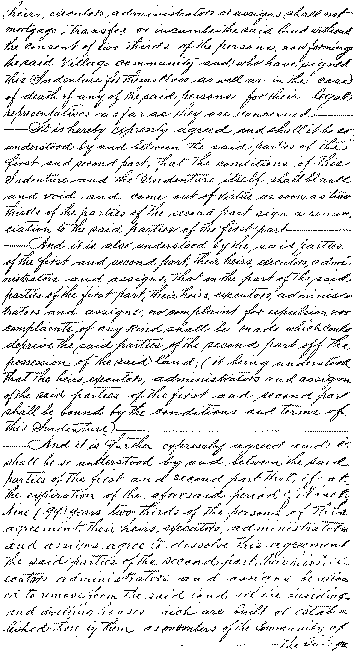 heirs, executors, administrators or assigns, shall not
mortgage, transfer or incumber the said land without
the consent of two thirds of the persons, now forming
the said Village community and who have signed
this Indenture for themselves, as well as in the case
of death of any of the said, persons for their legal,
representatives in as far as they are concerned.
It is hereby expressly agreed and shall it be so
understood by and between the said parties of the
first and second part, that the conditions of this
Indenture and the Indenture itself shall be null
and void and come out of virtue as soon as two
thirds of the parties of the second part sign a renun-
ciation to the said parties of the first part
And it is also understood by the said parties
of the first and second part, their heirs, executors, admi-
nistrators and assigns, that on the part of the said
parties of the first part, their heirs, executors, adminis-
trators and assigns, no complaint for expulsion, nor
complaints of any kind shall be made which could
deprive the said parties of the second part off the
possession of the said land, (it being understood
that the heirs, executors, administrators and assigns
of the said parties of the first and second part
shall be bound by the conditions and terms of
this Indenture)
And it is further expressly agreed and it
shall be so understood by and between the said
parties of the first and second part that, if at
the expiration of the aforesaid period of ninety
nine (99) years two thirds of the persons of this
agreement their heirs, executors, administrators
and assigns agree to dissolve this agreement
the said parties of the second part, their heirs, ex-
ecutors administrators and assigns be
to remove from the said land all the buildings
and dwelling houses which are built or estab-
lished there by them as members of the Community of
the Village